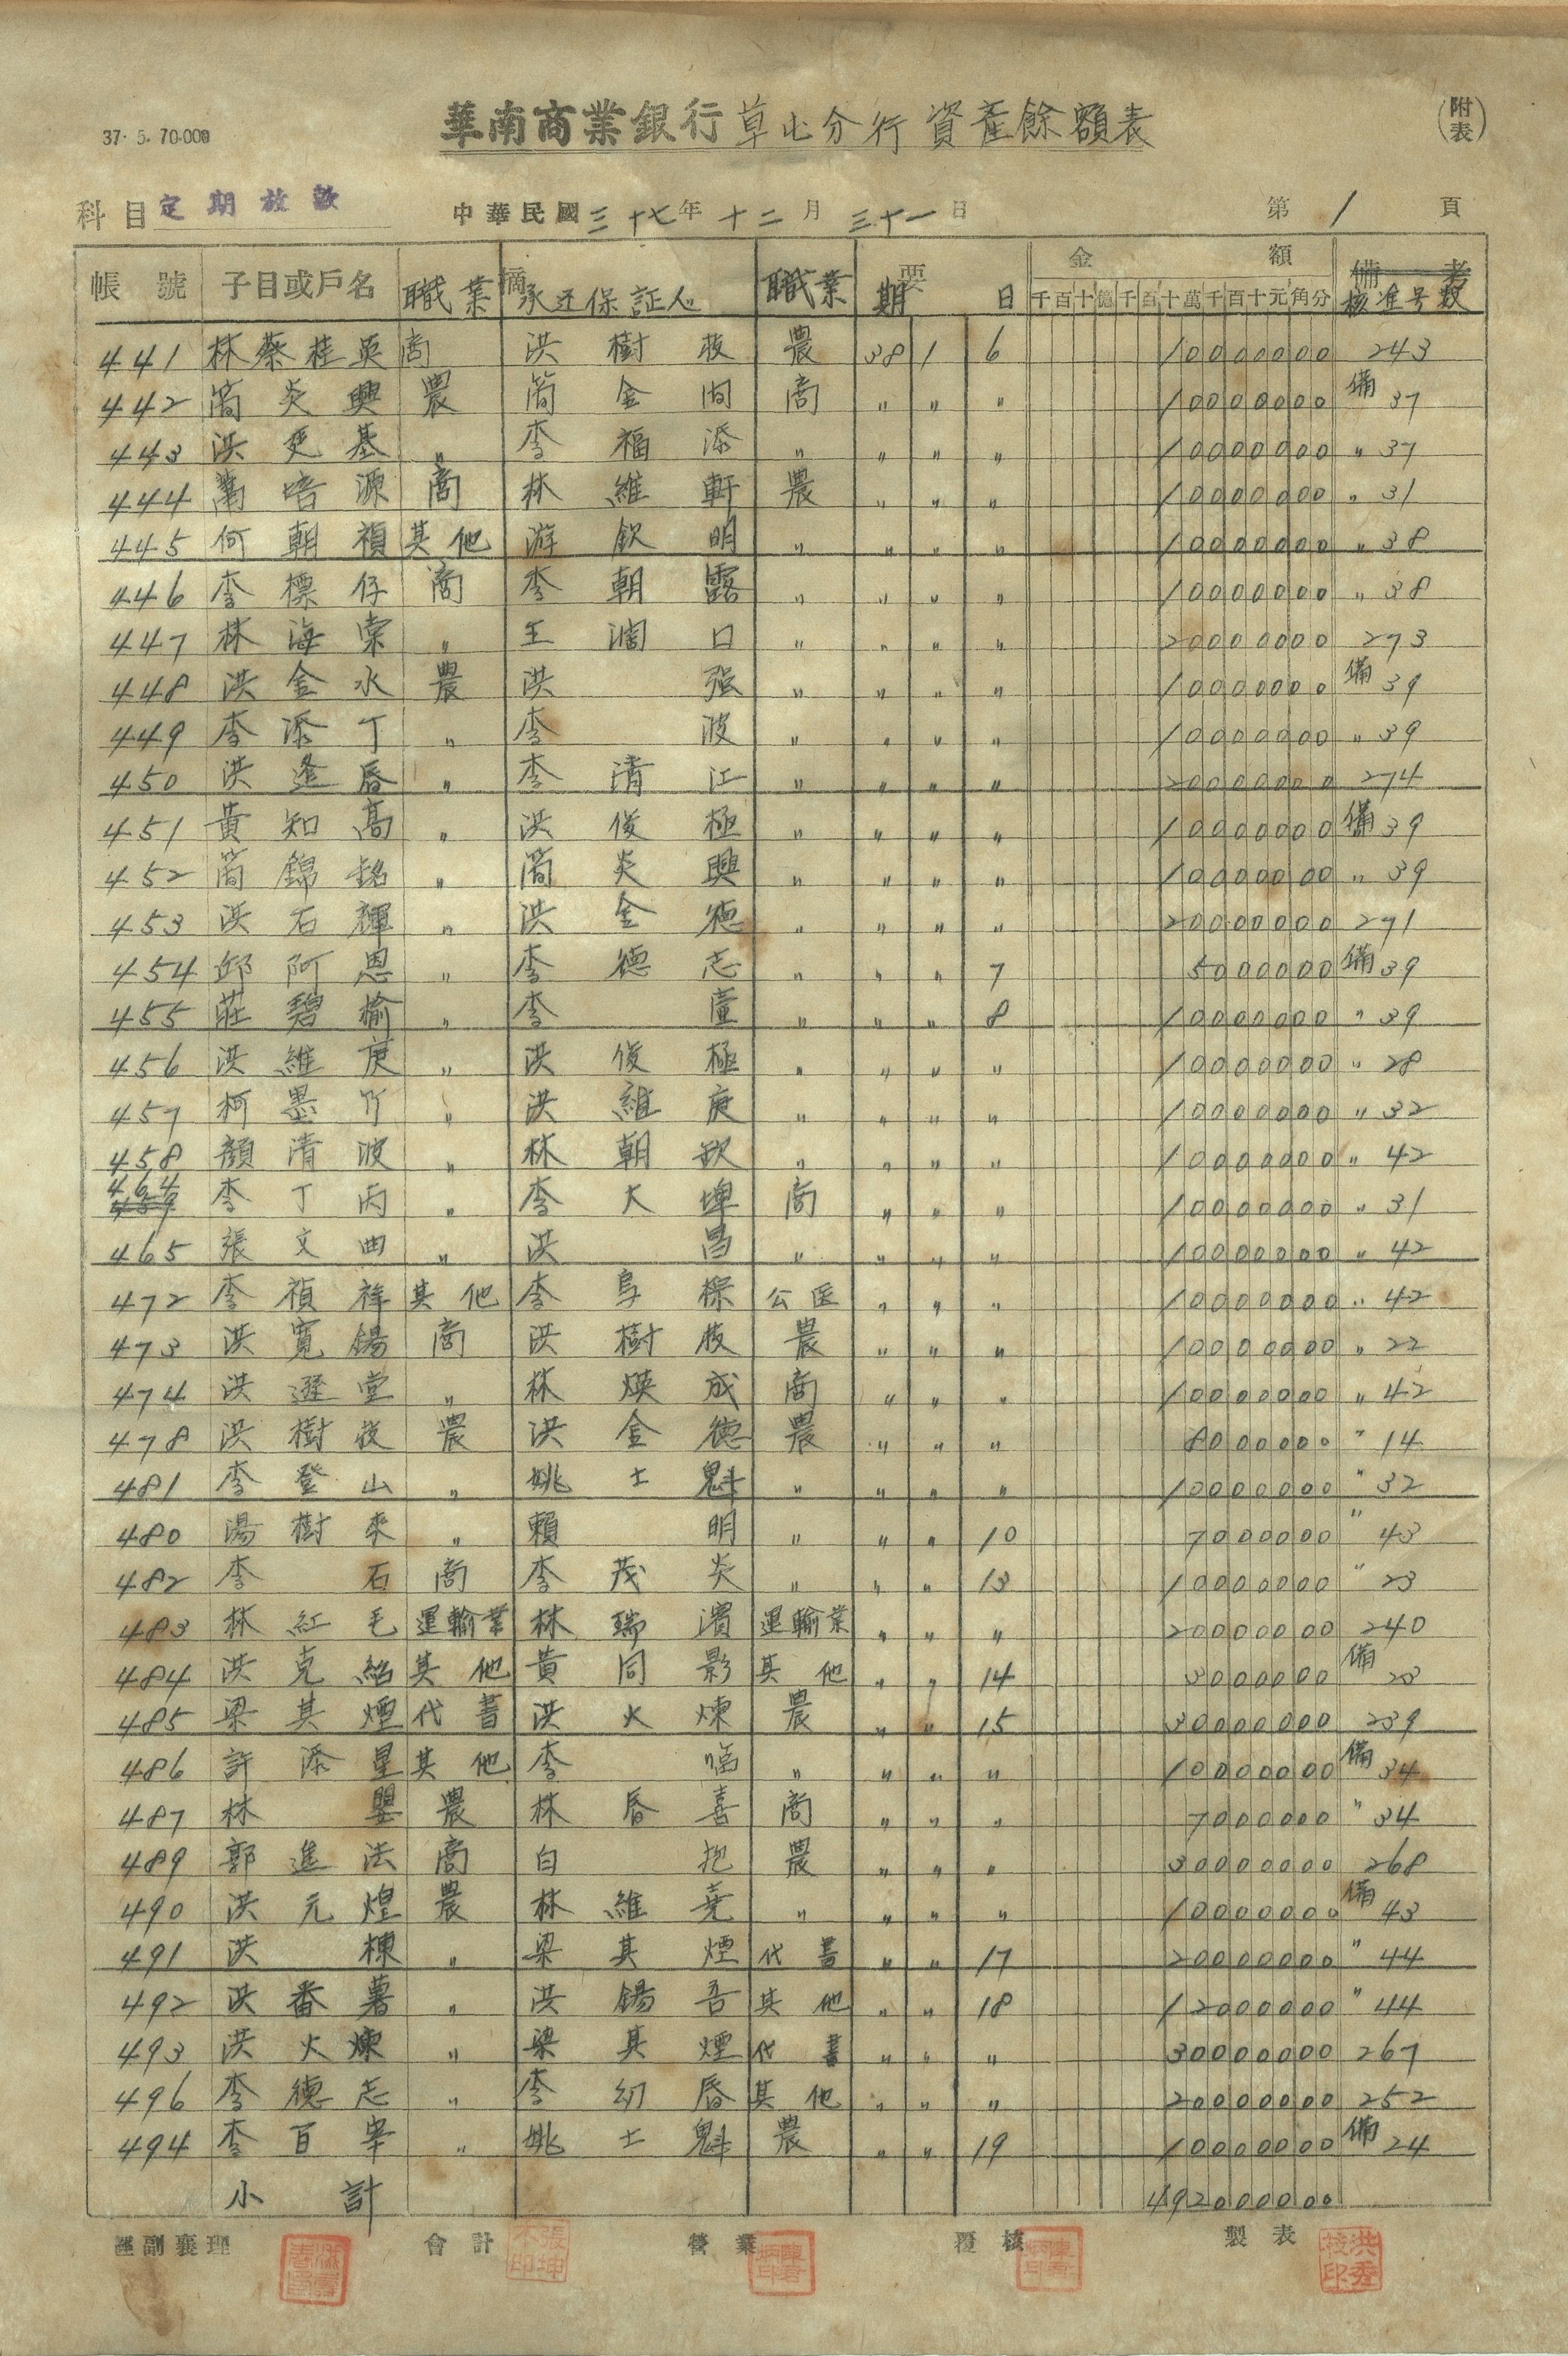 37. 5. 70.000
華南商業銀行草屯分行資產餘額表
(附表)
科目 定期放款 中華民國三十七年十二月三十一日 第1頁
帳號 子目或戶名 職業 摘要 承还保証人 職業 期日 金額 備考 核准号数
千百十億千百十萬千百十元角分
441 林蔡桂英 商 洪樹枝 農 38 1 6 10000000 243
442 簡炎興 農 簡金闾 商 〃 〃 〃 10000000 備37
443 洪廷基 〃 李福添 〃 〃 〃 〃 10000000 〃37
444 源 商 林維軒 農 〃 〃 〃 10000000 〃31
445 何朝禎 其他 游欽明 〃 〃 〃 〃 10000000 〃38
446 李標仔 商 李朝露 〃 〃 〃 〃 10000000 〃38
447 林海棠 〃 王濶口 〃 〃 〃 〃 20000000 273
448 洪金水 農 洪強 〃 〃 〃 〃 10000000 備39
449 李添丁 〃 李波 〃 〃 〃 〃 10000000 〃39
450 洪逢唇 〃 李清江 〃 〃 〃 〃 20000000 274
451 黃知高 〃 洪俊極 〃 〃 〃 〃 10000000 備39
452 簡錦銘 〃 簡炎興 〃 〃 〃 〃 10000000 〃39
453 洪石輝 〃 洪金德 〃 〃 〃 〃 20000000 271
454 邱阿恩 〃 李德志 〃 〃 〃 7 5000000 備39
455 莊碧榆 〃 李 〃 〃 〃 8 10000000 〃39
456 洪維庚 〃 洪俊極 〃 〃 〃 〃 10000000 〃28
457 柯墨竹 〃 洪維庚 〃 〃 〃 〃 10000000 〃32
458 顏清波 〃 林朝欽 〃 〃 〃 〃 10000000 〃42
464 459 李丁丙 〃 李大埤 商 〃 〃 〃 10000000 〃31
465 張文曲 〃 洪昌 〃 〃 〃 〃 10000000 〃42
472 李禎祥 其他 李阜樑 公医 〃 〃 〃 10000000 〃42
473 洪寬錫 商 洪樹枝 農 〃 〃 〃 10000000 〃22
474 洪遜堂 〃 林煐成 商 〃 〃 〃 10000000 〃42
478 洪樹枝 農 洪金德 農 〃 〃 〃 8000000 〃14
481 李登山 〃 姚士魁 〃 〃 〃 〃 10000000 〃32
480 湯樹來 〃 賴明 〃 〃 〃 10 7000000 〃43
482 李石 商 李茂炎 〃 〃 〃 13 10000000 〃23
483 林紅毛 運輸業 林瑞濱 運輸業 〃 〃 〃 20000000 240
484 洪克紹 其他 黃同影 其他 〃 〃 14 3000000 備23
485 梁其煙 代書 洪火煉 農 〃 〃 15 30000000 239
486 許添星 其他 李臨 〃 〃 〃 〃 10000000 備34
487 林嬰 農 林唇喜 商 〃 〃 〃 7000000 〃34
489 郭進法 商 白抱 農 〃 〃 〃 30000000 268
490 洪元煌 農 林維堯 〃 〃 〃 〃 10000000 備43
491 洪棟 〃 梁其煙 代書 〃 〃 17 20000000 〃44
492 洪番薯 〃 洪錫吾 其他 〃 〃 18 12000000 〃44
493 洪火煉 〃 梁其煙 代書 〃 〃 〃 30000000 267
496 李德志 〃 李幼唇 其他 〃 〃 〃 20000000 252
494 李百峯 〃 姚士魁 農 〃 〃 19 10000000 備24
小計 492000000
經副襄理 會計 營業 覆核 製表